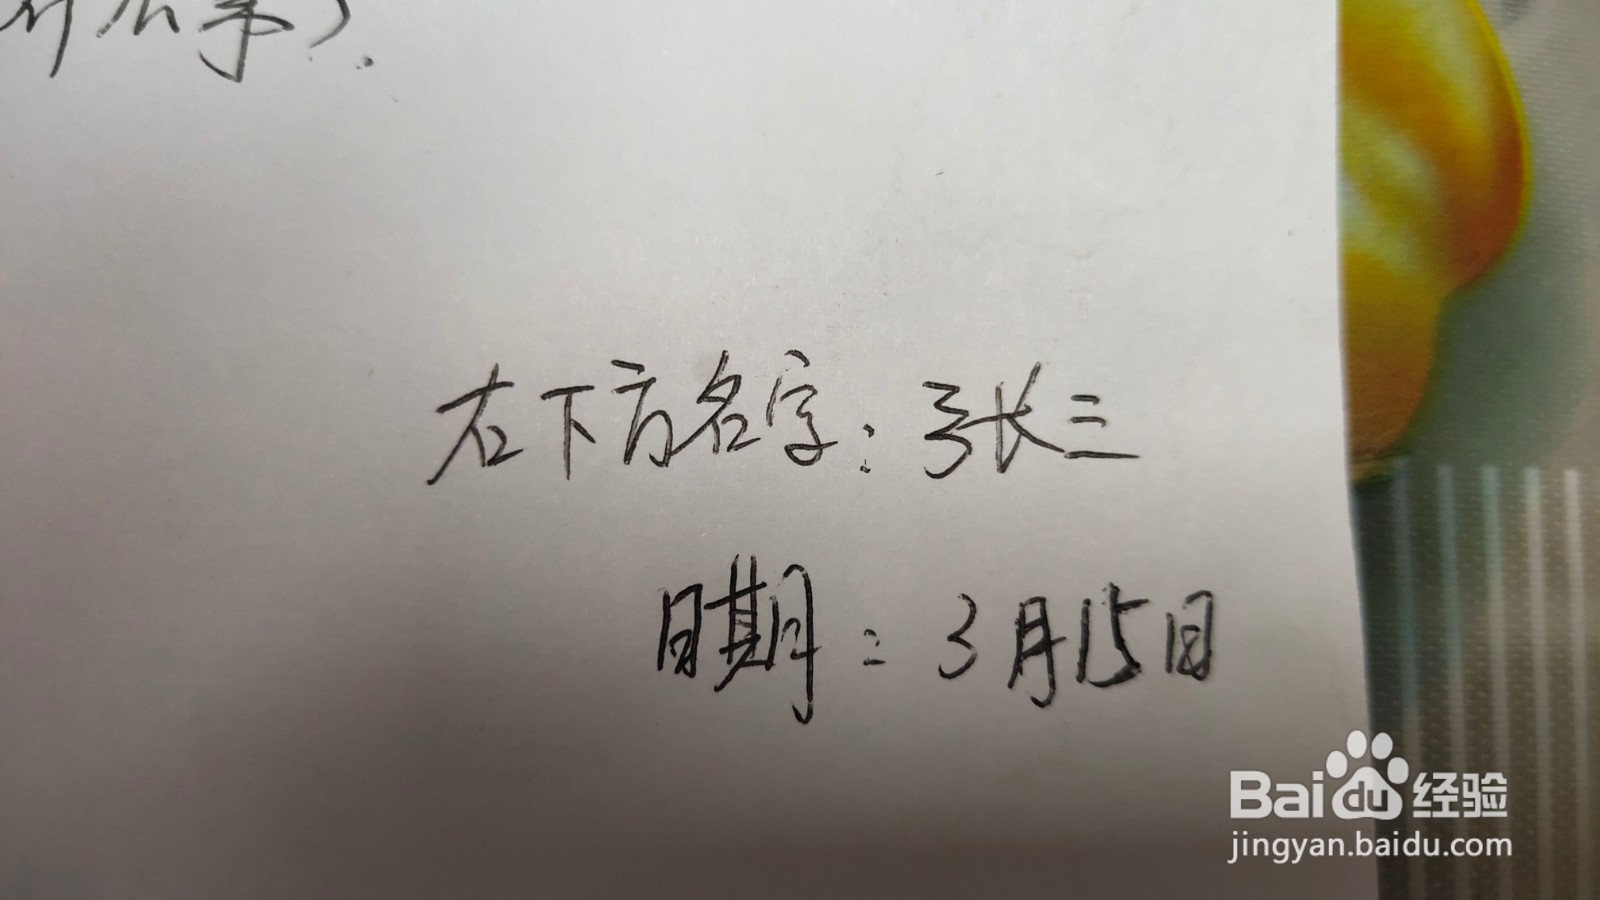 什么事）.
右下方名字：张三
日期：3月15日
Baidu经验
jingyan.baidu.com